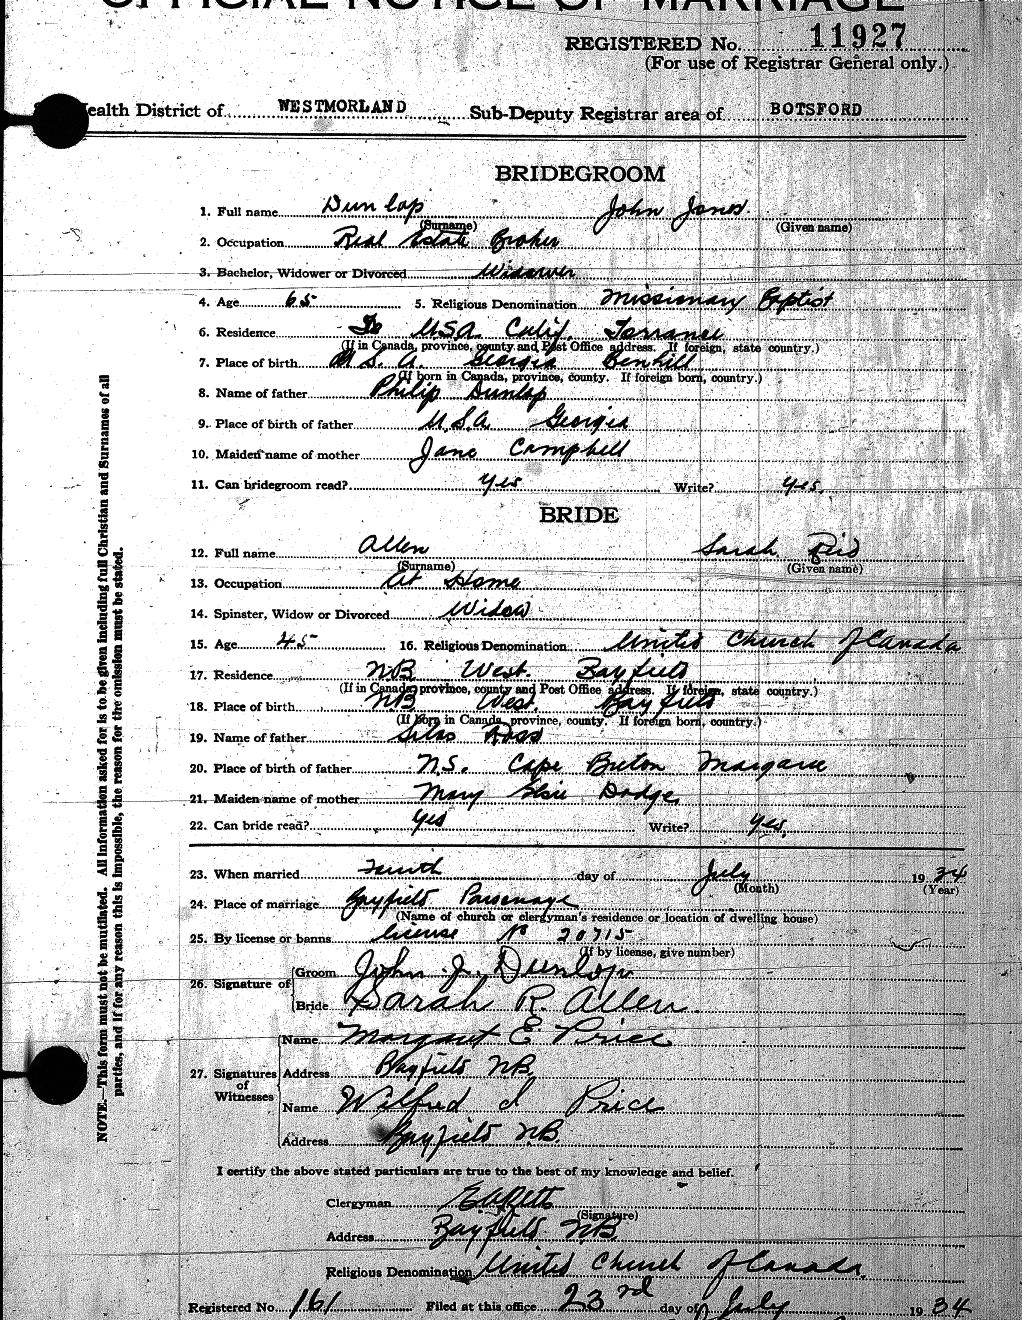 OFFICIAL NOTICE OF MARRIAGE
REGISTERED No. 11927
(For use of Registrar General only.)
Health District of WESTMORLAND Sub-Deputy Registrar area of BOTSFORD
BRIDEGROOM
1. Full name Dunlap John Jones
(Surname) (Given name)
2. Occupation Real Estate Broker
3. Bachelor, Widower or Divorced Widower
4. Age 65 5. Religious Denomination Missionary Baptist
6. Residence USA. Calif. Torrance
(If in Canada, province, county and Post Office address. If foreign, state country.)
7. Place of birth U.S.A. Georgia Benhill
(If born in Canada, province, county. If foreign born, country.)
8. Name of father Philip Dunlap
9. Place of birth of father U.S.A. Georgia
10. Maiden name of mother Jane Campbell
11. Can bridegroom read? Yes Write? Yes.
BRIDE
12. Full name Allen Sarah
(Surname) (Given name)
13. Occupation At Home
14. Spinster, Widow or Divorced Widow
15. Age 45 16. Religious Denomination United Church of Canada
17. Residence NB West. Bayfield
(If in Canada, province, county and Post Office address. If foreign, state country.)
18. Place of birth NB West. Bayfield
(If born in Canada, province, county. If foreign born, country.)
19. Name of father Silas Ross
20. Place of birth of father N.S. Cape Breton Margaree
21. Maiden name of mother Mary Elsie Dodge
22. Can bride read? Yes Write? Yes.
23. When married day of July 1934
(Month) (Year)
24. Place of marriage Bayfield Parsonage
(Name of church or clergyman's residence or location of dwelling house)
25. By license or banns License No 20715
(If by license, give number)
26. Signature of Groom John J. Dunlap
Bride Sarah R. Allen.
27. Signatures of Witnesses Name Margaret E Price
Address Bayfield NB.
Name Wilfred J Price
Address Bayfield NB.
I certify the above stated particulars are true to the best of my knowledge and belief.
Clergyman
(Signature)
Address Bayfield NB.
Religious Denomination United Church of Canada.
Registered No. 161 Filed at this office 23rd day of July 1934
NOTE.—This form must not be mutilated. All information asked for is to be given including full Christian and Surnames of all
parties, and if for any reason this is impossible, the reason for the omission must be stated.